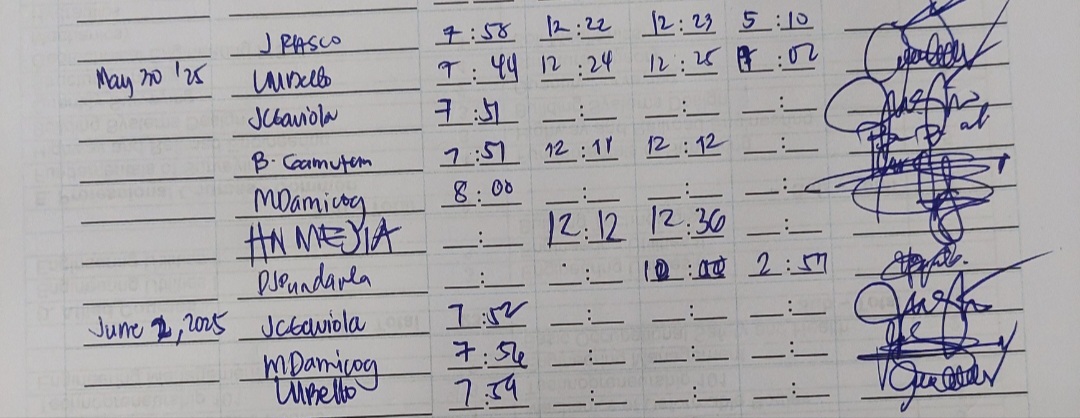 J RASCO 7:58 12:22 12:23 5:10
May 30 '25 UMBello 7:44 12:24 12:25 :02
JCGaviola 7:51
B. Caamutan 7:51 12:11 12:12
MDamicog 8:00
HN MEJIA 12:12 12:36
2:57
June 2, 2025 JCGaviola 7:52
MDamicog 7:56
UMBello 7:59